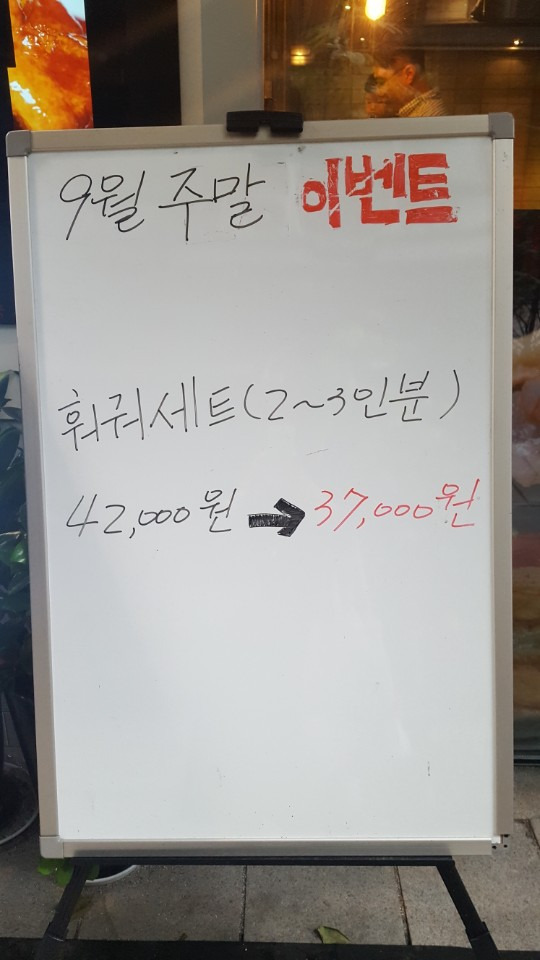 9월 주말 이벤트
훠궈세트(2~3인분)
42,000원 → 37,000원